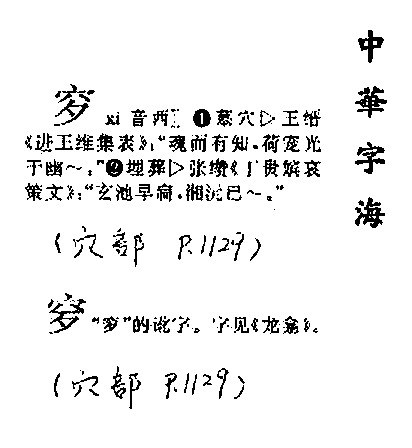 中華字海
穸 xi 音西 ❶墓穴▷王缙
《进王维集表》:“魂而有知,荷宠光
于幽~。”❷埋葬▷张缵《丁贵嫔哀
策文》:“玄池早扃,湘沅已~。”
(穴部 P.1129)
“穸”的讹字。字见《龙龛》。
(穴部 P.1129)